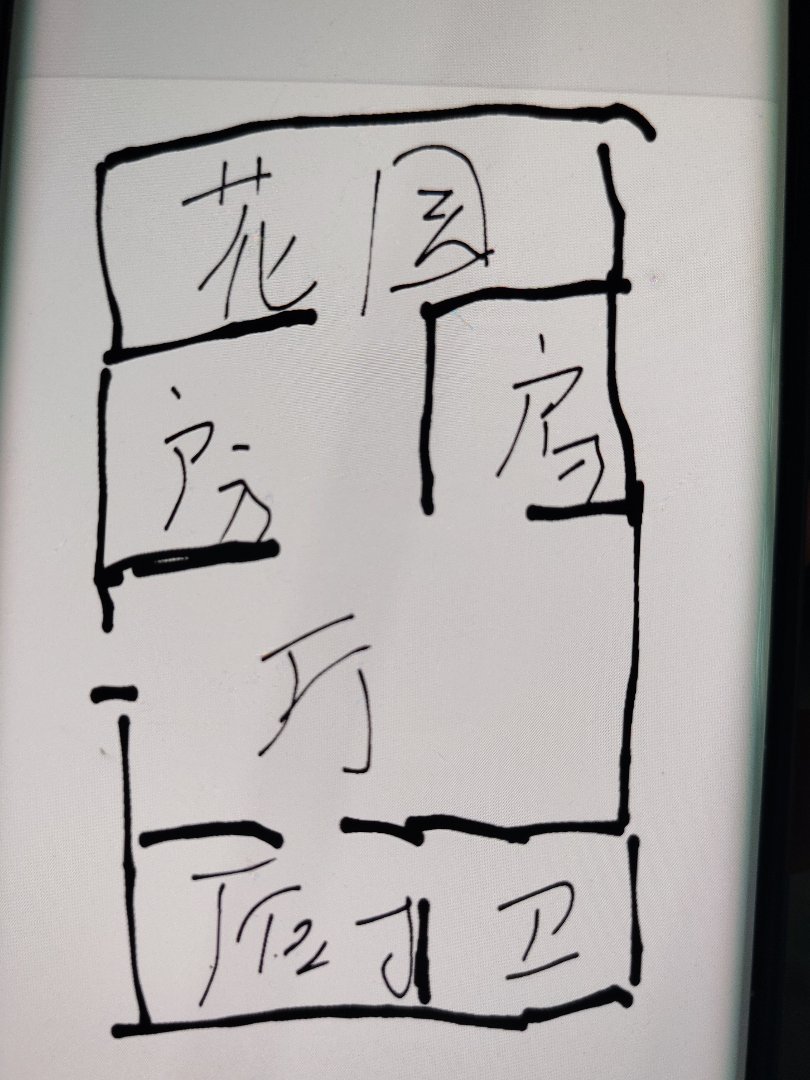 花园
房
房
厅
厨
卫